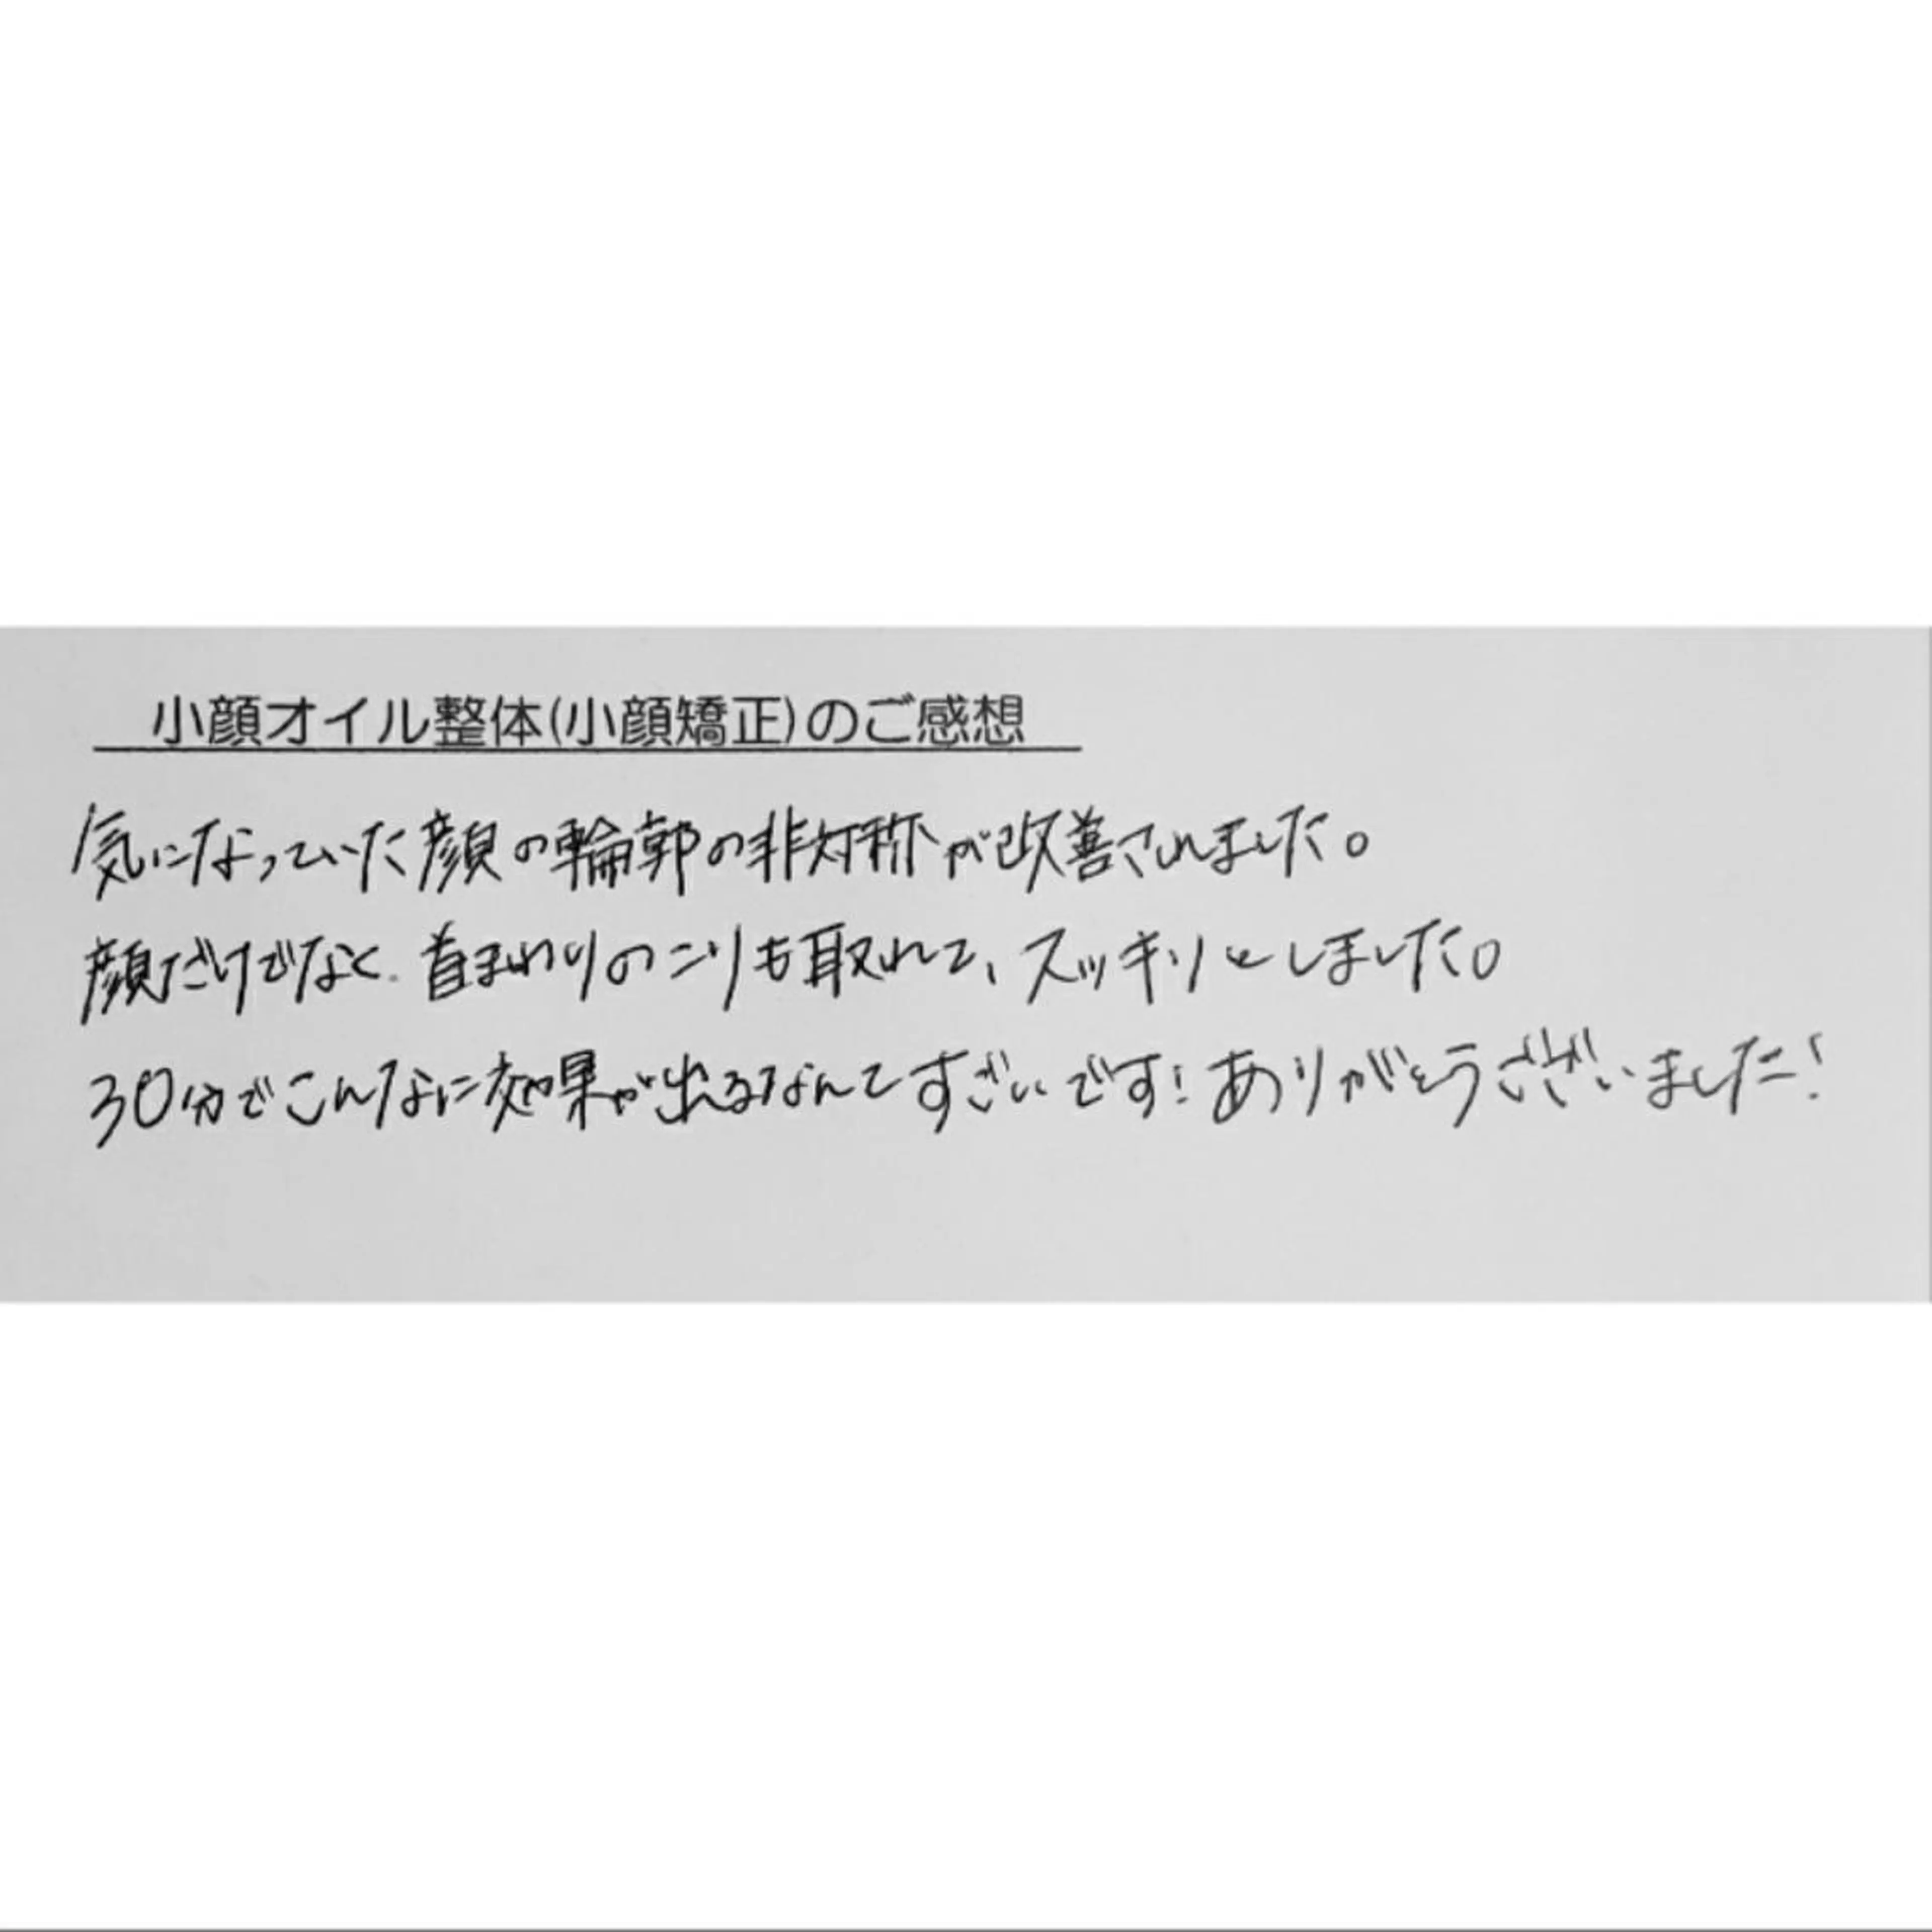 小顔オイル整体(小顔矯正)のご感想
気になっていた顔の輪郭の非対称が改善されました。
顔だけでなく、首まわりのこりも取れて、スッキリとしました。
30分でこんなに効果が出るなんてすごいです！ありがとうございました！